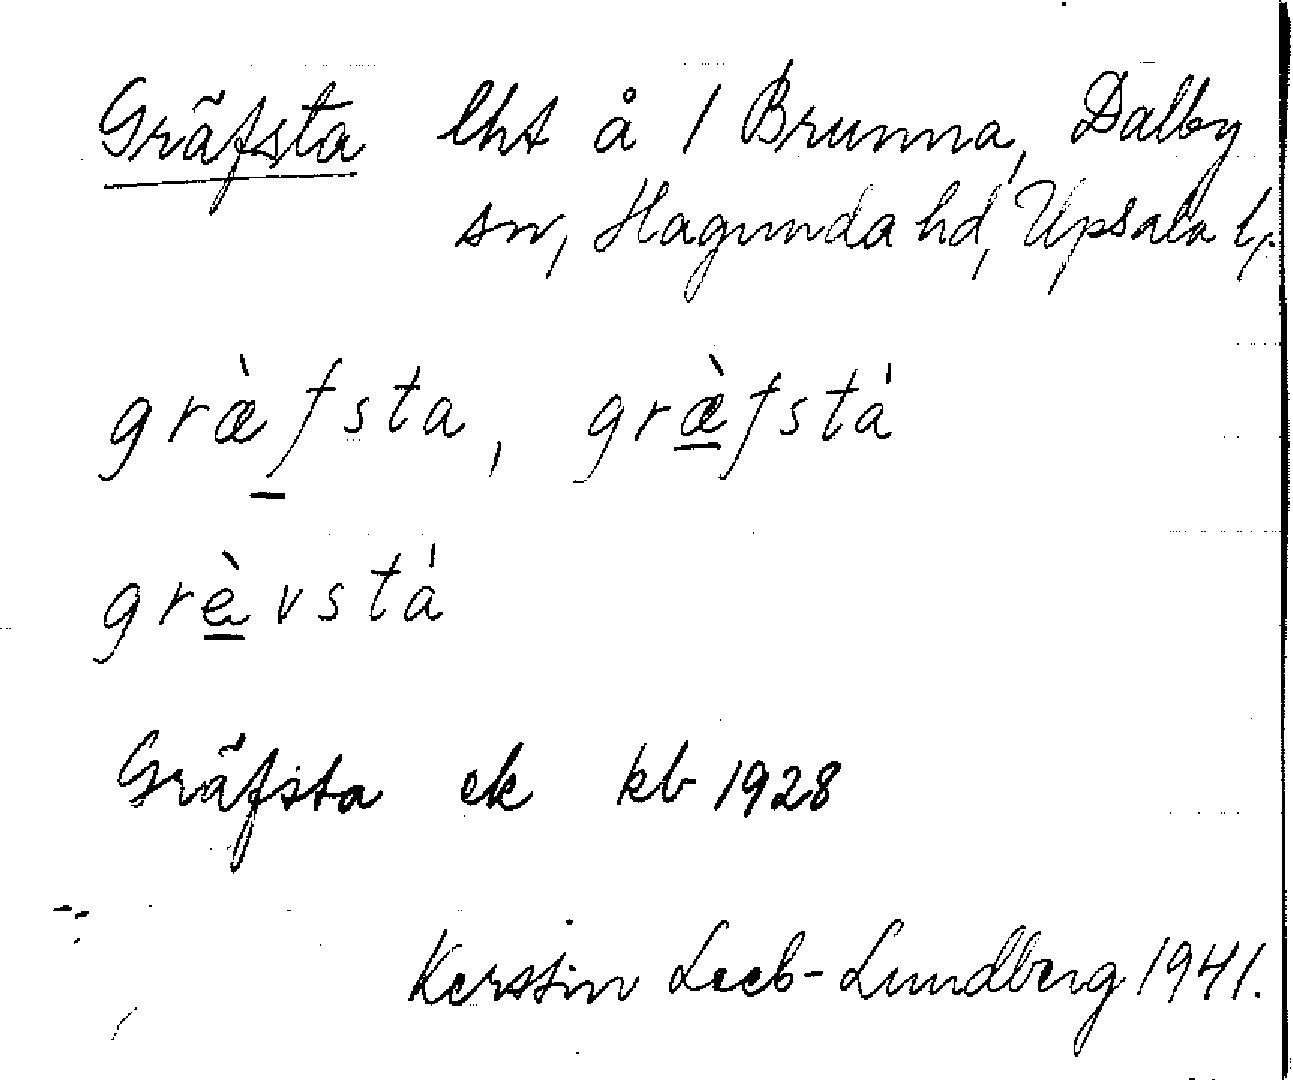 Gräfsta lht å 1 Brunna, Dalby
sn, Hagunda hd, Upsala l,
græ̀f̱sta, græ̱̀fstá
grè̱vstá
Gräfsta ek kb 1928
Kerstin Leeb-Lundberg 1941.